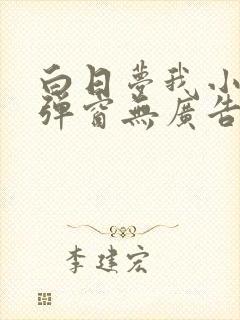 白日夢我 小
彈窗無廣告
李建宏